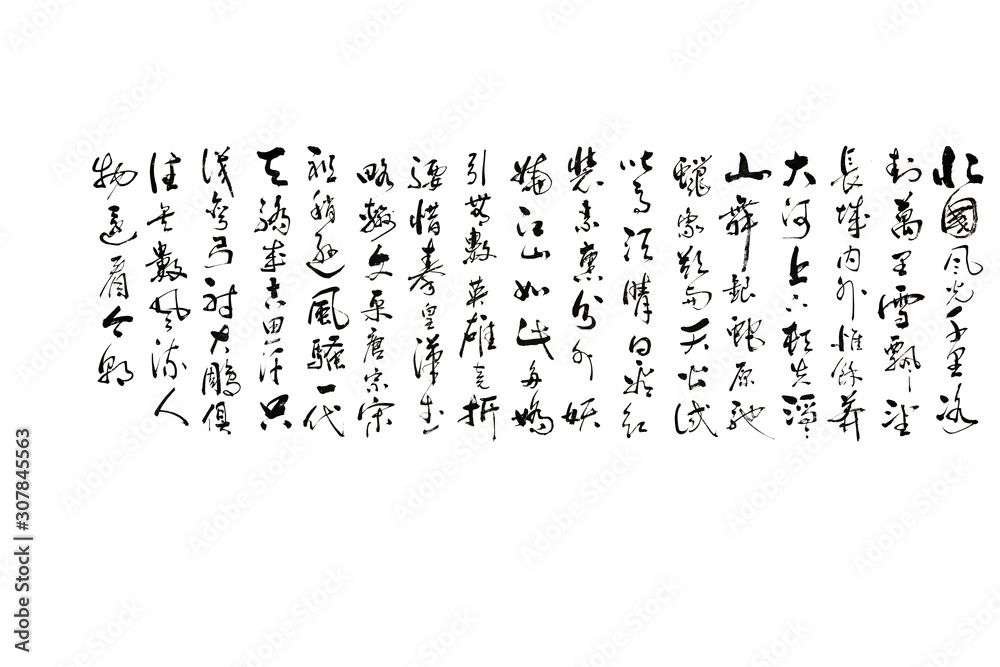 北國風光千里冰
封萬里雪飄望
長城內外惟餘莽
大河上下頓失滔
山舞銀蛇原馳
蠟象欲與天公試
比高須晴日看紅
裝素裹分外妖
嬈江山如此多嬌
引無數英雄競折
腰惜秦皇漢武
略輸文采唐宗宋
祖稍遜風騷一代
天驕成吉思汗只
識彎弓射大鵰俱
往矣數風流人
物還看今朝
Adobe Stock | #307845563